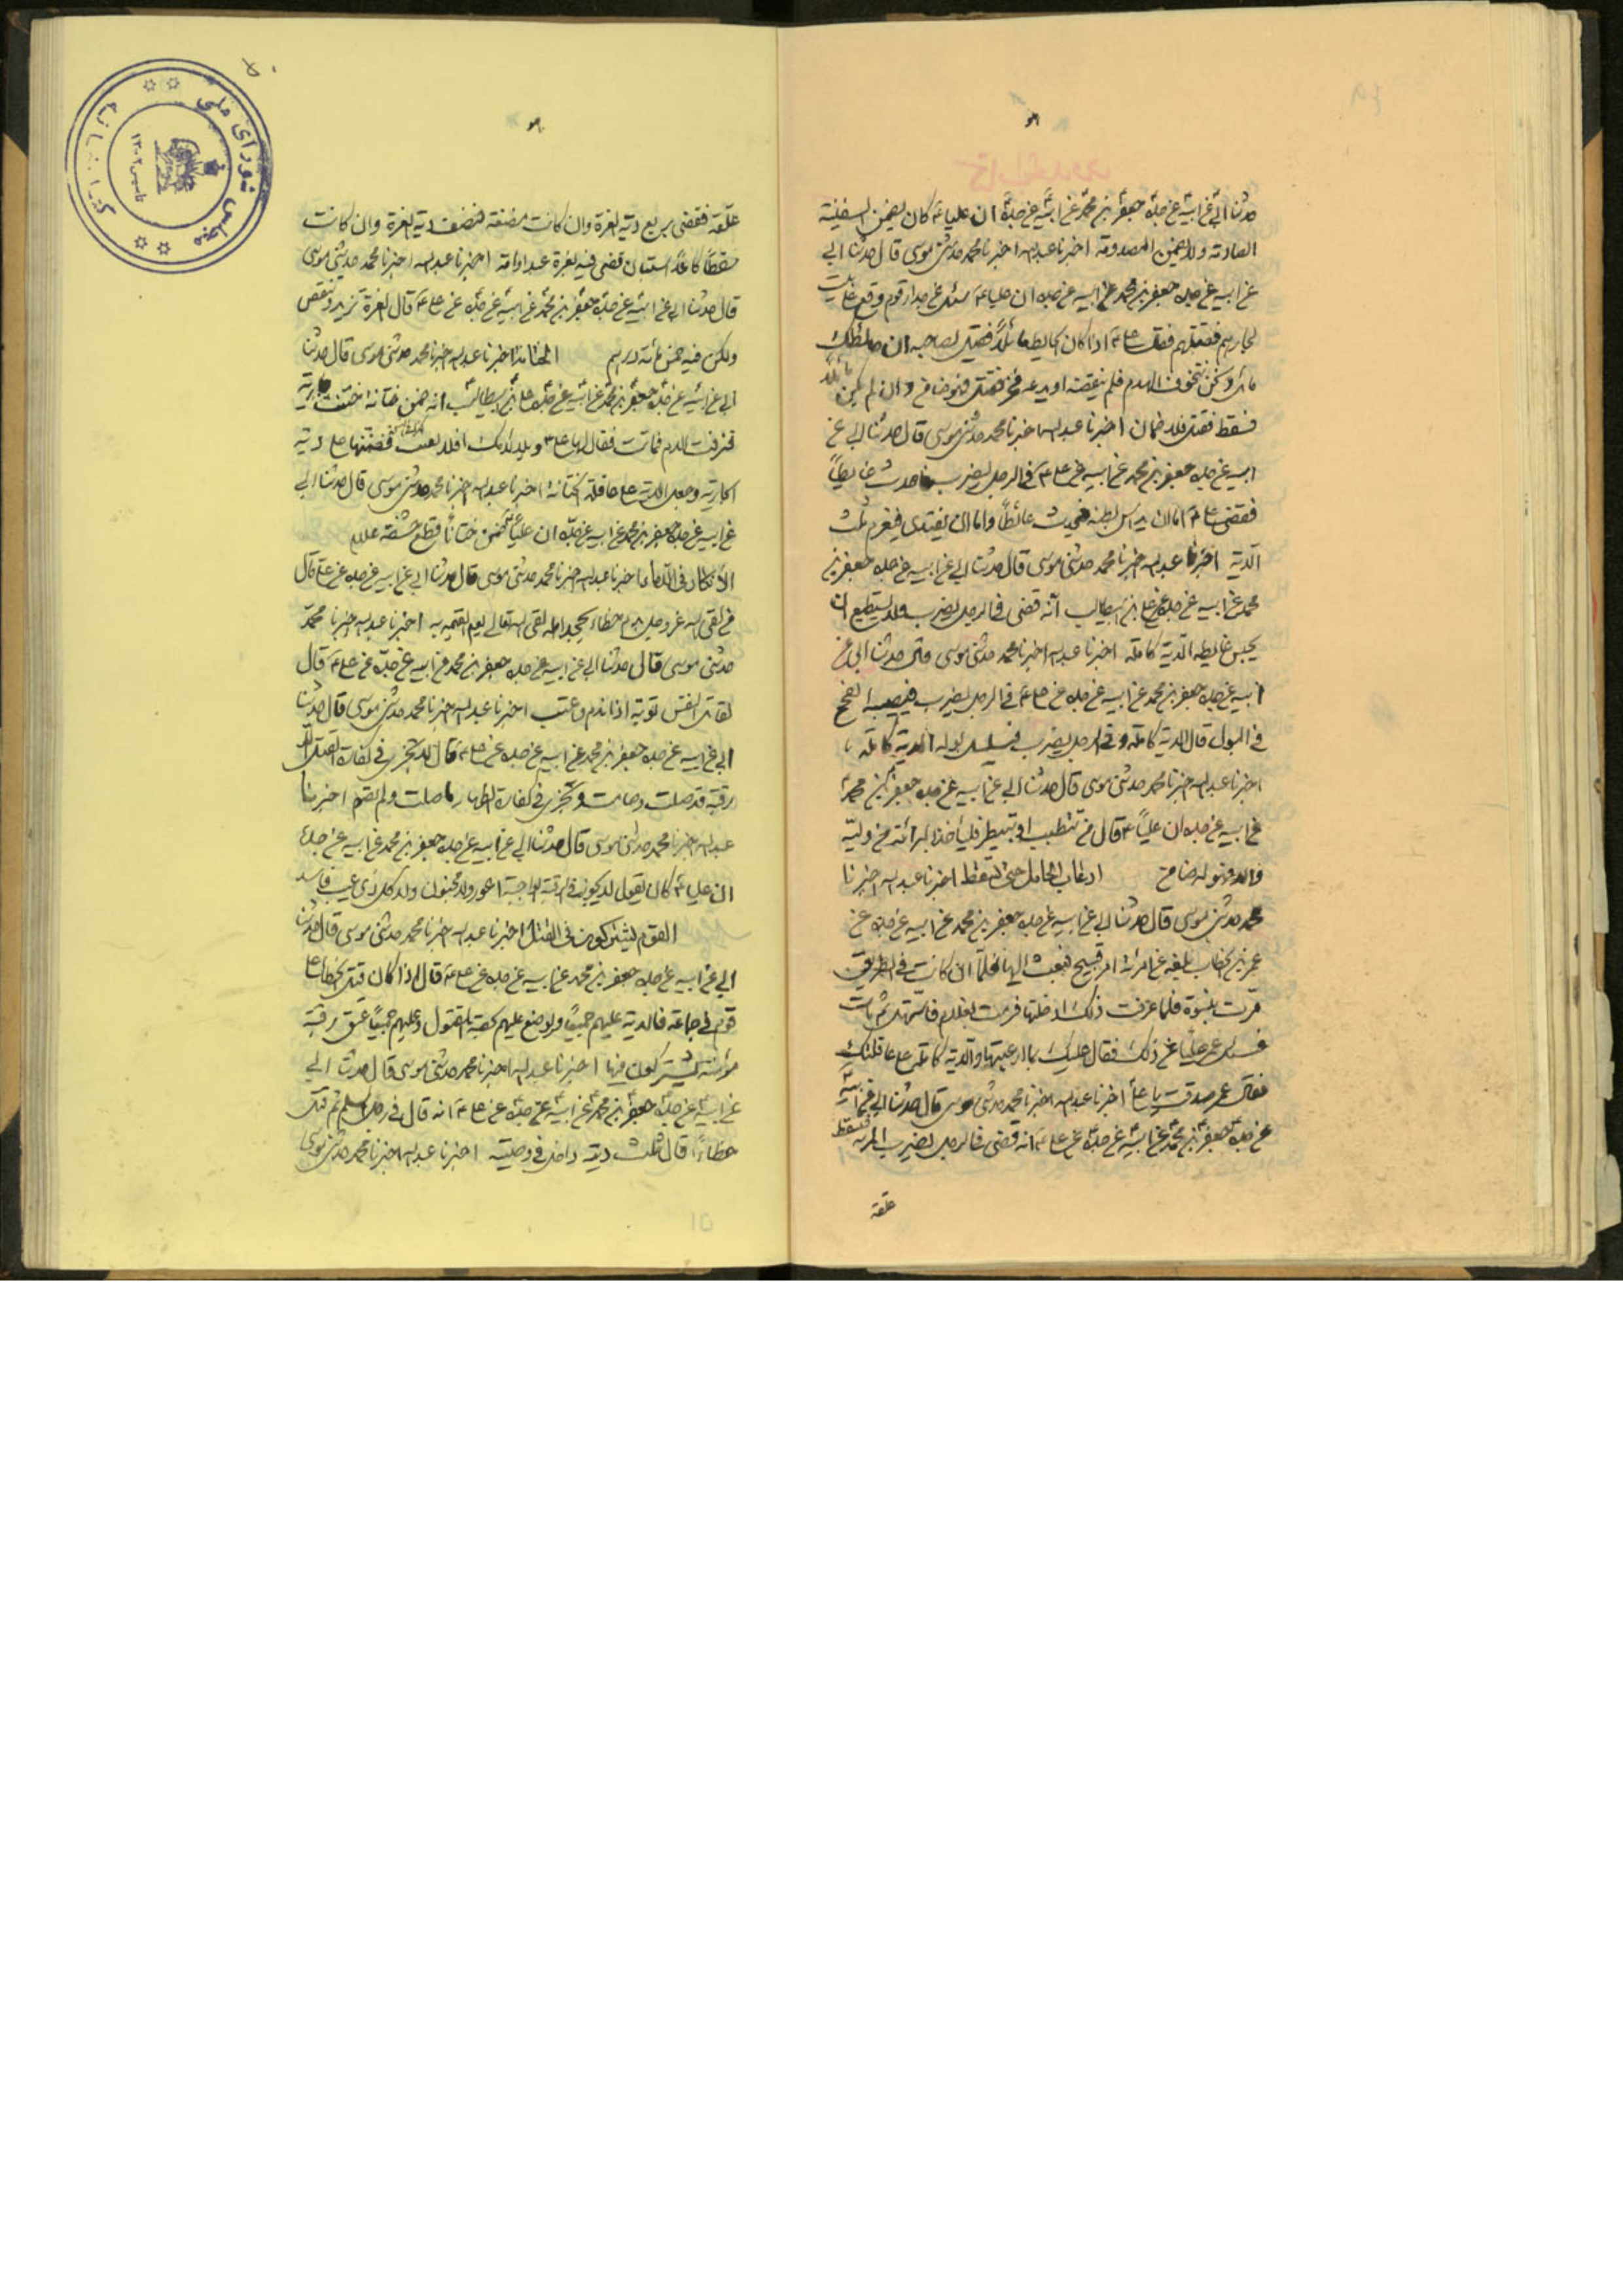 هو
حدثنا ابي عن ابيه عن جده جعفر بن محمد عن ابيه عن جده ان عليا ع كان يضمن السفينة
الصادمة ولا يضمن المصدومة اخبرنا عبد الله اخبرنا محمد حدثني موسى قال حدثنا ابي
عن ابيه عن جده جعفر بن محمد عن ابيه عن جده ان عليا ع سئل عن جدار قوم وقع على بيت
لجارهم فقتلهم فقال علي ع اذا كان الحايط مائلا فقيل لصاحبه ان حائطك
مائل ونحن نتخوف الهدم فلم ينقضه او يدعمه فخر فقتل فهو ضامن وان لم يكن مائلا
فسقط فقتل فلا ضمان اخبرنا عبد الله اخبرنا محمد حدثني موسى قال حدثنا ابي عن
ابيه عن جده جعفر بن محمد عن ابيه عن علي ع في الرجل يضرب فاحدث غايطا
فقضى علي ع اما ان يداس بطنه فيحدث غائطا واما ان يفتدي فيغرم ثلث
الدية اخبرنا عبد الله اخبرنا محمد حدثني موسى قال حدثنا ابي عن ابيه عن جده جعفر بن
محمد عن ابيه عن جده عن علي بن ابيطالب انه قضى في الرجل يضرب فلا يستطيع ان
يحبس غايطه الدية كاملة اخبرنا عبد الله اخبرنا محمد حدثني موسى قال حدثنا ابي عن
ابيه عن جده جعفر بن محمد عن ابيه عن جده عن علي ع في الرجل يضرب فيصيبه
في البول قال الدية كاملة وفي الرجل يضرب فيسلسل بوله الدية كاملة
اخبرنا عبد الله اخبرنا محمد حدثني موسى قال حدثنا ابي عن ابيه عن جده جعفر بن محمد
عن ابيه عن جده ان عليا ع قال من تطبب او تبيطر فليأخذ البرائة من وليه
والا فهو له ضامن ارعاب الحامل حتى تسقط اخبرنا عبد الله اخبرنا
محمد حدثني موسى قال حدثنا ابي عن ابيه عن جده جعفر بن محمد عن ابيه عن جده عن
عمر بن الخطاب بلغه عن امرأة امر قبيح فبعث اليها فلما ان كانت في الطريق
مرت بنسوة فلما عرفت ذلك ادخلتها فرمت بغلام فاستهل ثم مات
فسئل عمر عليا عن ذلك فقال عليك بما ارعبتها والدية كاملة على عاقلتك
فقال عمر صدقت يا علي اخبرنا عبد الله اخبرنا محمد حدثني موسى قال حدثنا ابي عن ابيه
عن جده جعفر بن محمد عن ابيه عن جده عن علي ع انه قضى في الرجل يضرب المرأة فتسقط
علقة
هو
علقة فقضى بربع دية الغرة وان كانت مضغة فنصف دية الغرة وان كانت
سقطا كاملا استبان قضى فيه بغرة عبد او امة اخبرنا عبد الله اخبرنا محمد حدثني موسى
قال حدثنا ابي عن ابيه عن جده جعفر بن محمد عن ابيه عن جده عن علي ع قال الغرة تزيد وتنقص
ولكن فيه خمس مائة درهم الختانة اخبرنا عبد الله اخبرنا محمد حدثني موسى قال حدثنا
ابي عن ابيه عن جده جعفر بن محمد عن ابيه عن جده علي بن ابيطالب انه ضمن ختانة ختنت جارية
فنزفت الدم فماتت فقال لها علي ع ويلا لامك افلا ابقيت فضمنها علي دية
الجارية وجعل الدية على عاقلة الختانة اخبرنا عبد الله اخبرنا محمد حدثني موسى قال حدثنا ابي
عن ابيه عن جده جعفر بن محمد عن ابيه عن جده ان عليا ضمن ختانا قطع حشفة غلام
الانكار في الدماء اخبرنا عبد الله اخبرنا محمد حدثني موسى قال حدثنا ابي عن ابيه عن جده عن علي قال
من لقى الله عز وجل بدم خطاء يجحد اهله لقى الله تعالى يوم القيمة به اخبرنا عبد الله اخبرنا محمد
حدثني موسى قال حدثنا ابي عن ابيه عن جده جعفر بن محمد عن ابيه عن جده عن علي ع قال
لقاتل النفس توبة اذا ندم واعتب اخبرنا عبد الله اخبرنا محمد حدثني موسى قال حدثنا
ابي عن ابيه عن جده جعفر بن محمد عن ابيه عن جده عن علي ع قال لا تجزي في كفارة القتل الا
رقبة قد صلت وصامت وتجزي في كفارة الظهار ما صلت ولم تصم اخبرنا
عبد الله اخبرنا محمد حدثني موسى قال حدثنا ابي عن ابيه عن جده جعفر بن محمد عن ابيه عن جده
ان عليا ع كان يقول لا يكون في الرقبة الواجبة اعور ولا مجنون ولا كل ذي عيب فاسد
القوم يشتركون في القتل اخبرنا عبد الله اخبرنا محمد حدثني موسى قال حدثنا
ابي عن ابيه عن جده جعفر بن محمد عن ابيه عن جده عن علي ع قال اذا كان قتل الخطاء على
قوم في جماعة فالدية عليهم جميعا ويوضع عليهم حصة المقتول وعليهم جميعا عتق رقبة
مؤمنة يشتركون فيها اخبرنا عبد الله اخبرنا محمد حدثني موسى قال حدثنا ابي
عن ابيه عن جده جعفر بن محمد عن ابيه عن جده عن علي ع انه قال في رجل اسلم ثم قتل
خطاءا قال ثلث ديته داخل في وصيته اخبرنا عبد الله اخبرنا محمد حدثني موسى
كتابخانه مجلس شورای ملی
تاسیس ۱۳۰۲